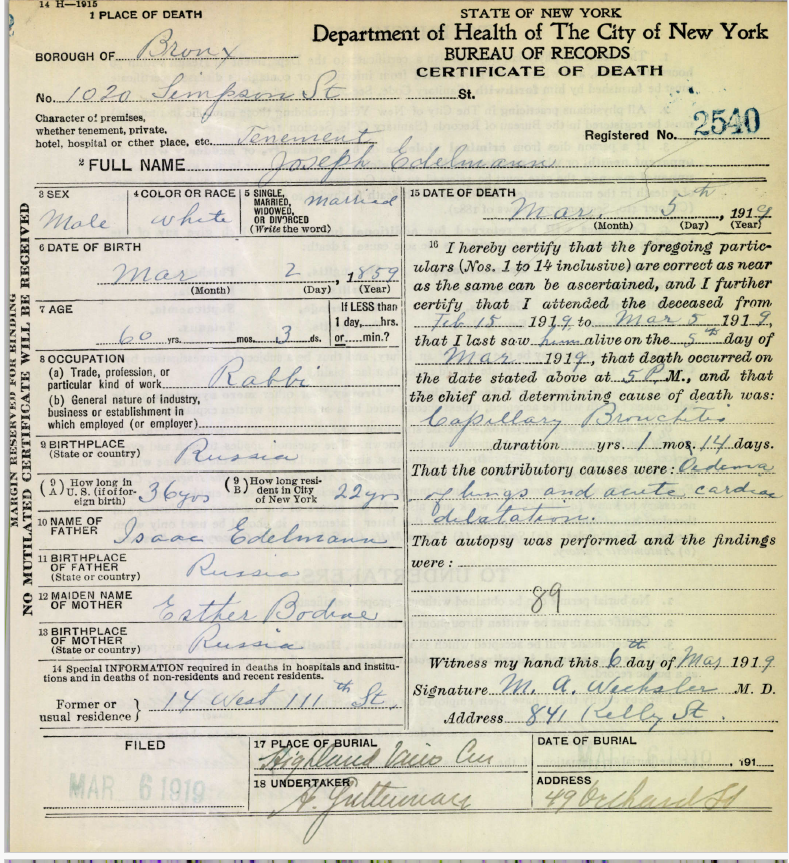 14 H—1915
1 PLACE OF DEATH
STATE OF NEW YORK
Department of Health of The City of New York
BUREAU OF RECORDS
CERTIFICATE OF DEATH
BOROUGH OF Bronx
No. 1020 Simpson St St.
Character of premises,
whether tenement, private,
hotel, hospital or other place, etc. Tenement
Registered No. 2540
2 FULL NAME Joseph Edelmann
MARGIN RESERVED FOR BINDING
NO MUTILATED CERTIFICATE WILL BE RECEIVED
3 SEX
Male
4 COLOR OR RACE
White
5 SINGLE,
MARRIED,
WIDOWED,
OR DIVORCED
(Write the word)
married
6 DATE OF BIRTH
Mar 2, 1859
(Month) (Day) (Year)
7 AGE
60 yrs. mos. 3 ds.
If LESS than
1 day, hrs.
or min.?
8 OCCUPATION
(a) Trade, profession, or
particular kind of work Rabbi
(b) General nature of industry,
business or establishment in
which employed (or employer)
9 BIRTHPLACE
(State or country) Russia
(9 A) How long in
U. S. (if of for-
eign birth) 36 yrs
(9 B) How long resi-
dent in City
of New York 22 yrs
10 NAME OF
FATHER Isaac Edelmann
11 BIRTHPLACE
OF FATHER
(State or country) Russia
12 MAIDEN NAME
OF MOTHER Esther Bodine
13 BIRTHPLACE
OF MOTHER
(State or country) Russia
14 Special INFORMATION required in deaths in hospitals and institu-
tions and in deaths of non-residents and recent residents.
Former or
usual residence } 14 West 111th St.
15 DATE OF DEATH
Mar. 5th, 1919
(Month) (Day) (Year)
16 I hereby certify that the foregoing partic-
ulars (Nos. 1 to 14 inclusive) are correct as near
as the same can be ascertained, and I further
certify that I attended the deceased from
Feb 15 1919 to Mar 5 1919,
that I last saw him alive on the 5th day of
Mar 1919, that death occurred on
the date stated above at 5 P.M., and that
the chief and determining cause of death was:
Capillary Bronchitis
duration yrs. 1 mos. 14 days.
That the contributory causes were: Oedema
of lungs and acute cardiac
dilatation.
That autopsy was performed and the findings
were:
89
Witness my hand this 6th day of Mar 1919
Signature M. A. Wechsler M. D.
Address 841 Kelly St.
FILED
MAR 6 1919
17 PLACE OF BURIAL
Highland View Cem
DATE OF BURIAL
, 191
18 UNDERTAKER
A. Gutterman
ADDRESS
49 Orchard St